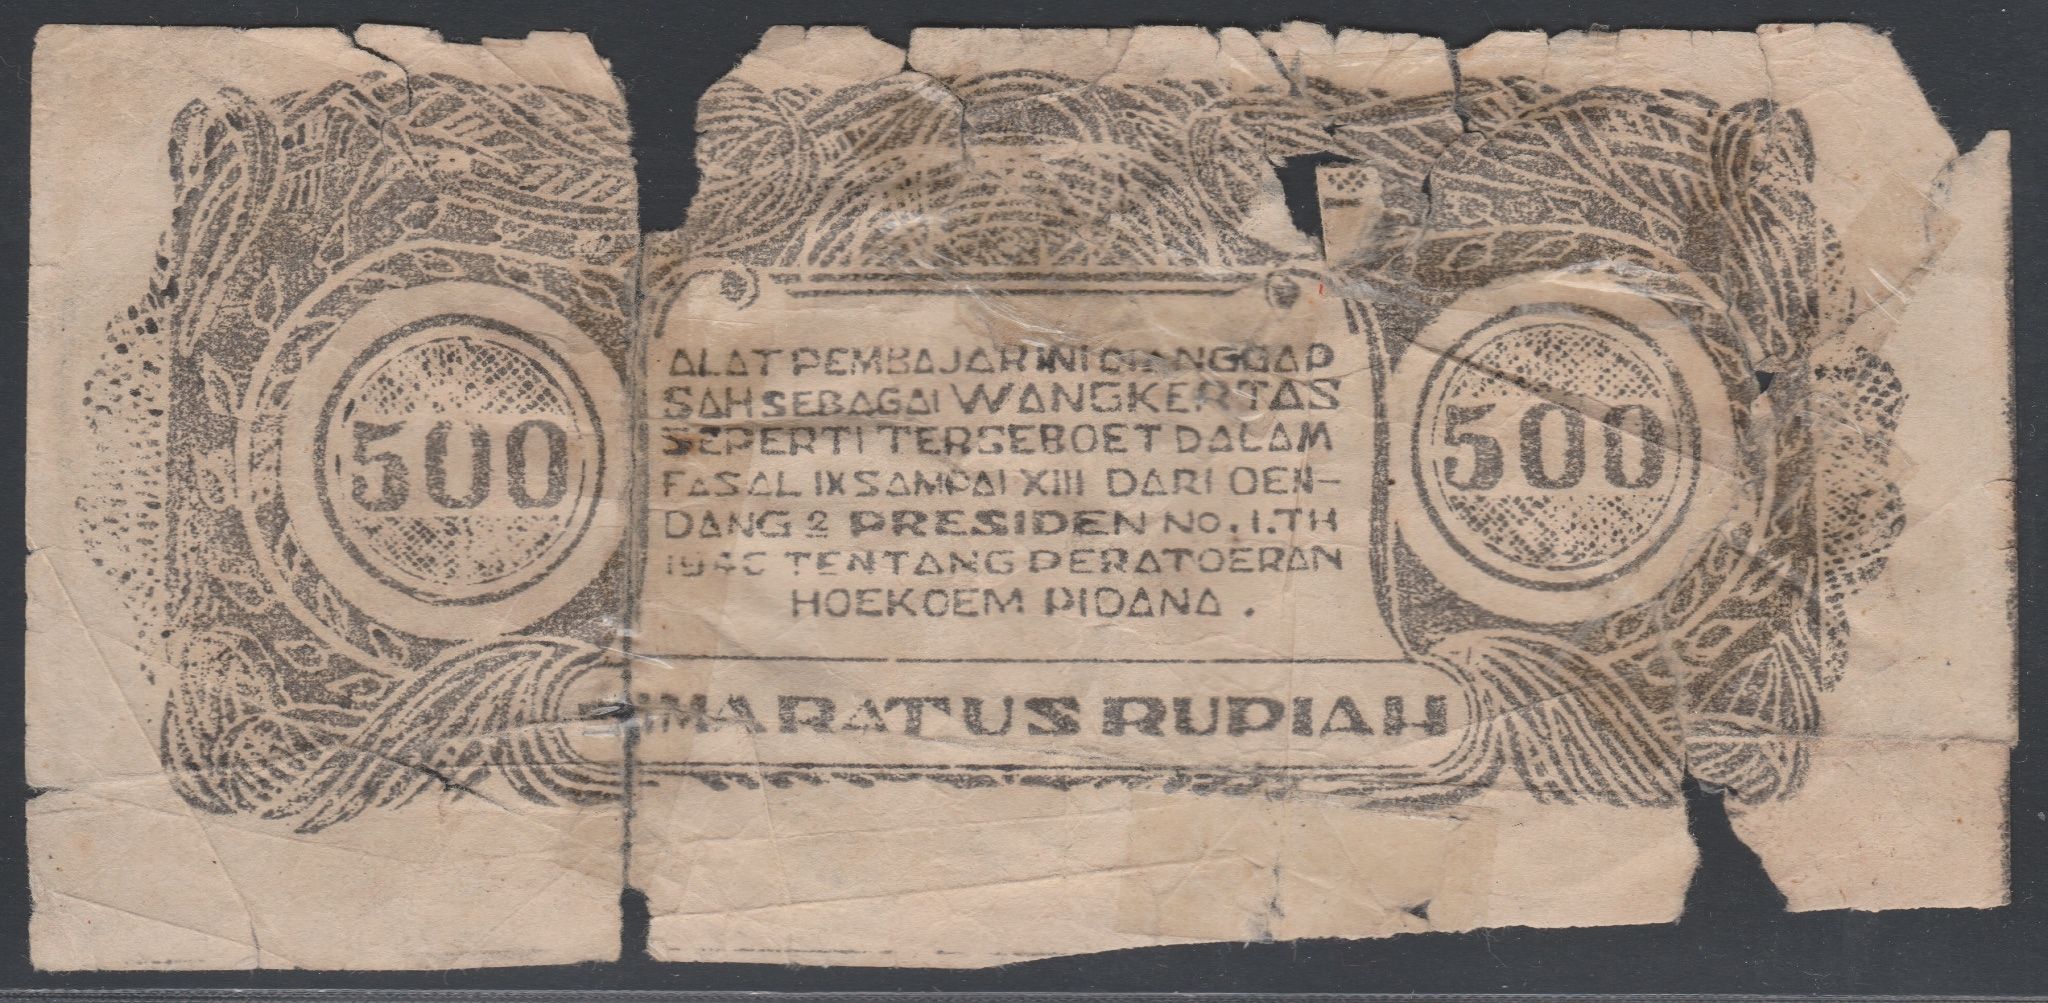 500
ALAT PEMBAJAR INI DIANGGAP
SAH SEBAGAI WANG KERTAS
SEPERTI TERSEBOET DALAM
FASAL IX SAMPAI XIII DARI OEN-
DANG2 PRESIDEN No. I. TH
TENTANG PERATOERAN
HOEKOEM PIDANA.
500
IMA RATUS RUPIAH